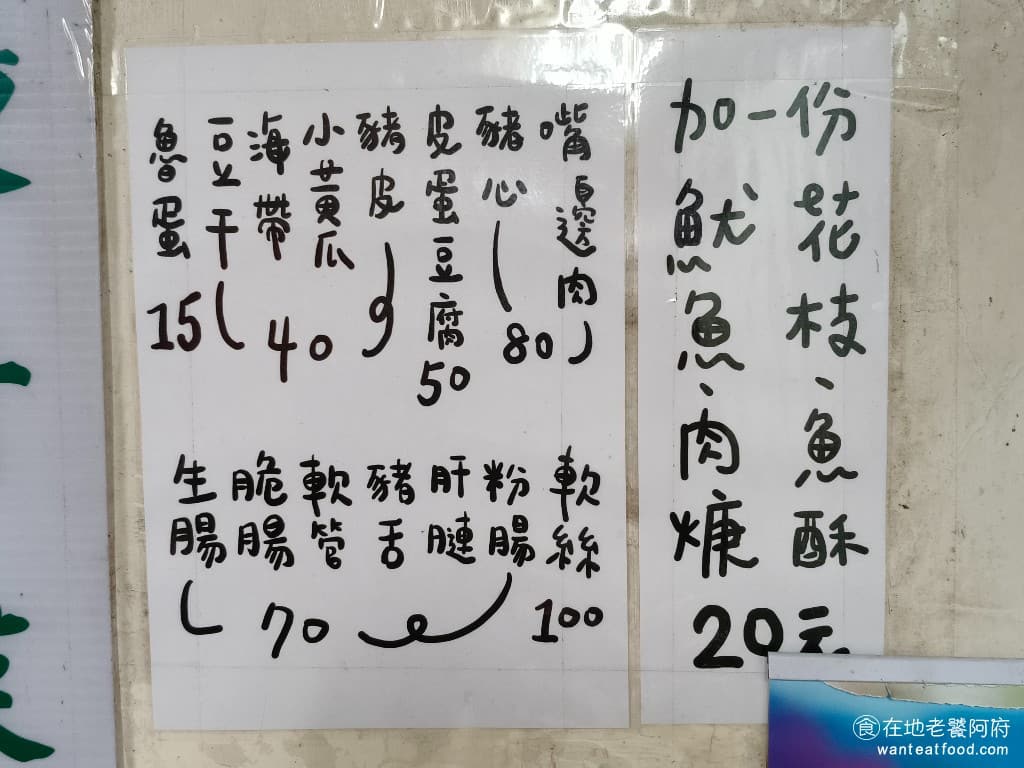 加一份
花枝、魚酥
魷魚、肉焿
20元
嘴邊肉
豬心
80
皮蛋豆腐
50
豬皮
小黃瓜
海帶
40
豆干
魯蛋
15
軟絲
100
粉腸
肝
豬舌
軟管
脆腸
生腸
70
食在地老饕阿府
wanteatfood.com